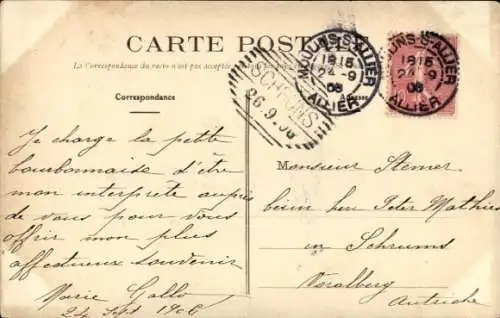 CARTE POSTALE
La Correspondance du recto n'est pas acceptée
Correspondance
Adresse
MOULINS-S-ALLIER
1815
24-9
06
ALLIER
MOULINS-S-ALLIER
1815
24-9
06
ALLIER
SCHRUNS
26.9.06
Je charge la petite
bourbonnaise d'être
mon interprète auprès
de vous pour vous
offrir mon plus
affectueux souvenir
Marie Gallo
24 Sept 1906
Monsieur Stemer
beim hrn Peter Mathies
in Schruns
Voralberg
Autriche